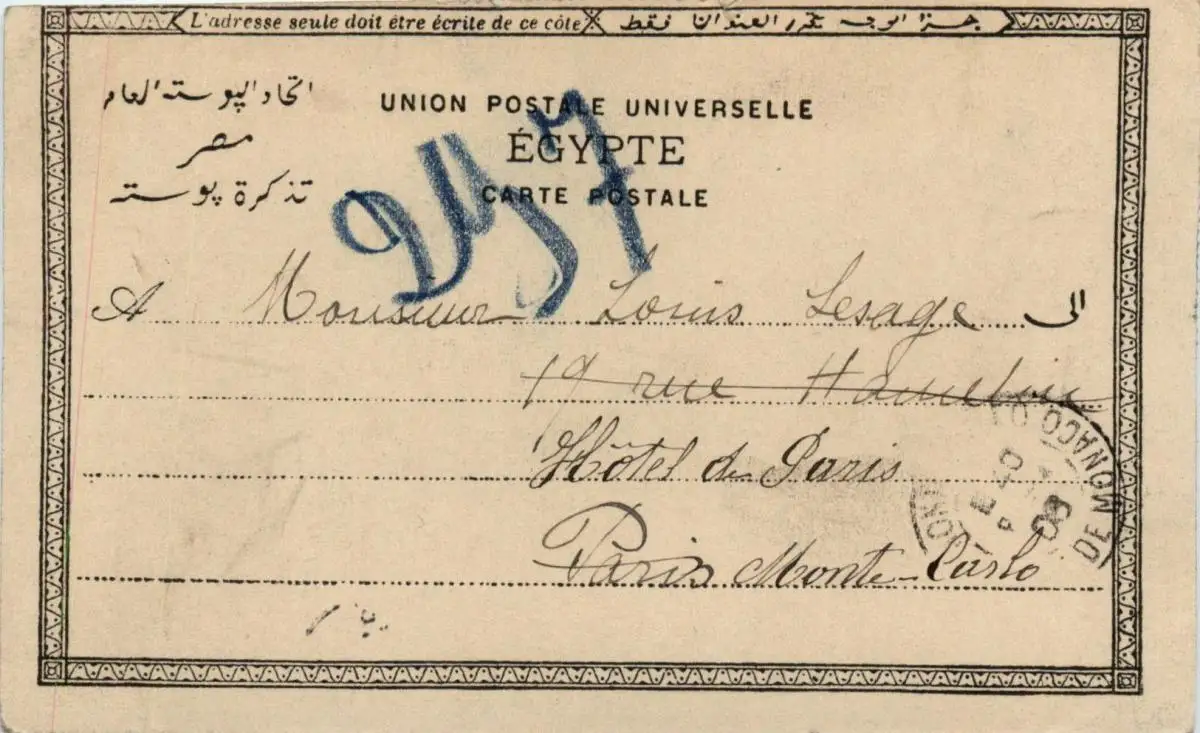 L'adresse seule doit être écrite de ce côté هذا الوجه محرر العنوان فقط
اتحاد البوسته العام
UNION POSTALE UNIVERSELLE
مصر
ÉGYPTE
تذكرة بوسته
CARTE POSTALE
A Monsieur Louis Lesage الى
19 rue Hamelin
Hôtel de Paris
Paris Monte-Carlo
DE MONACO